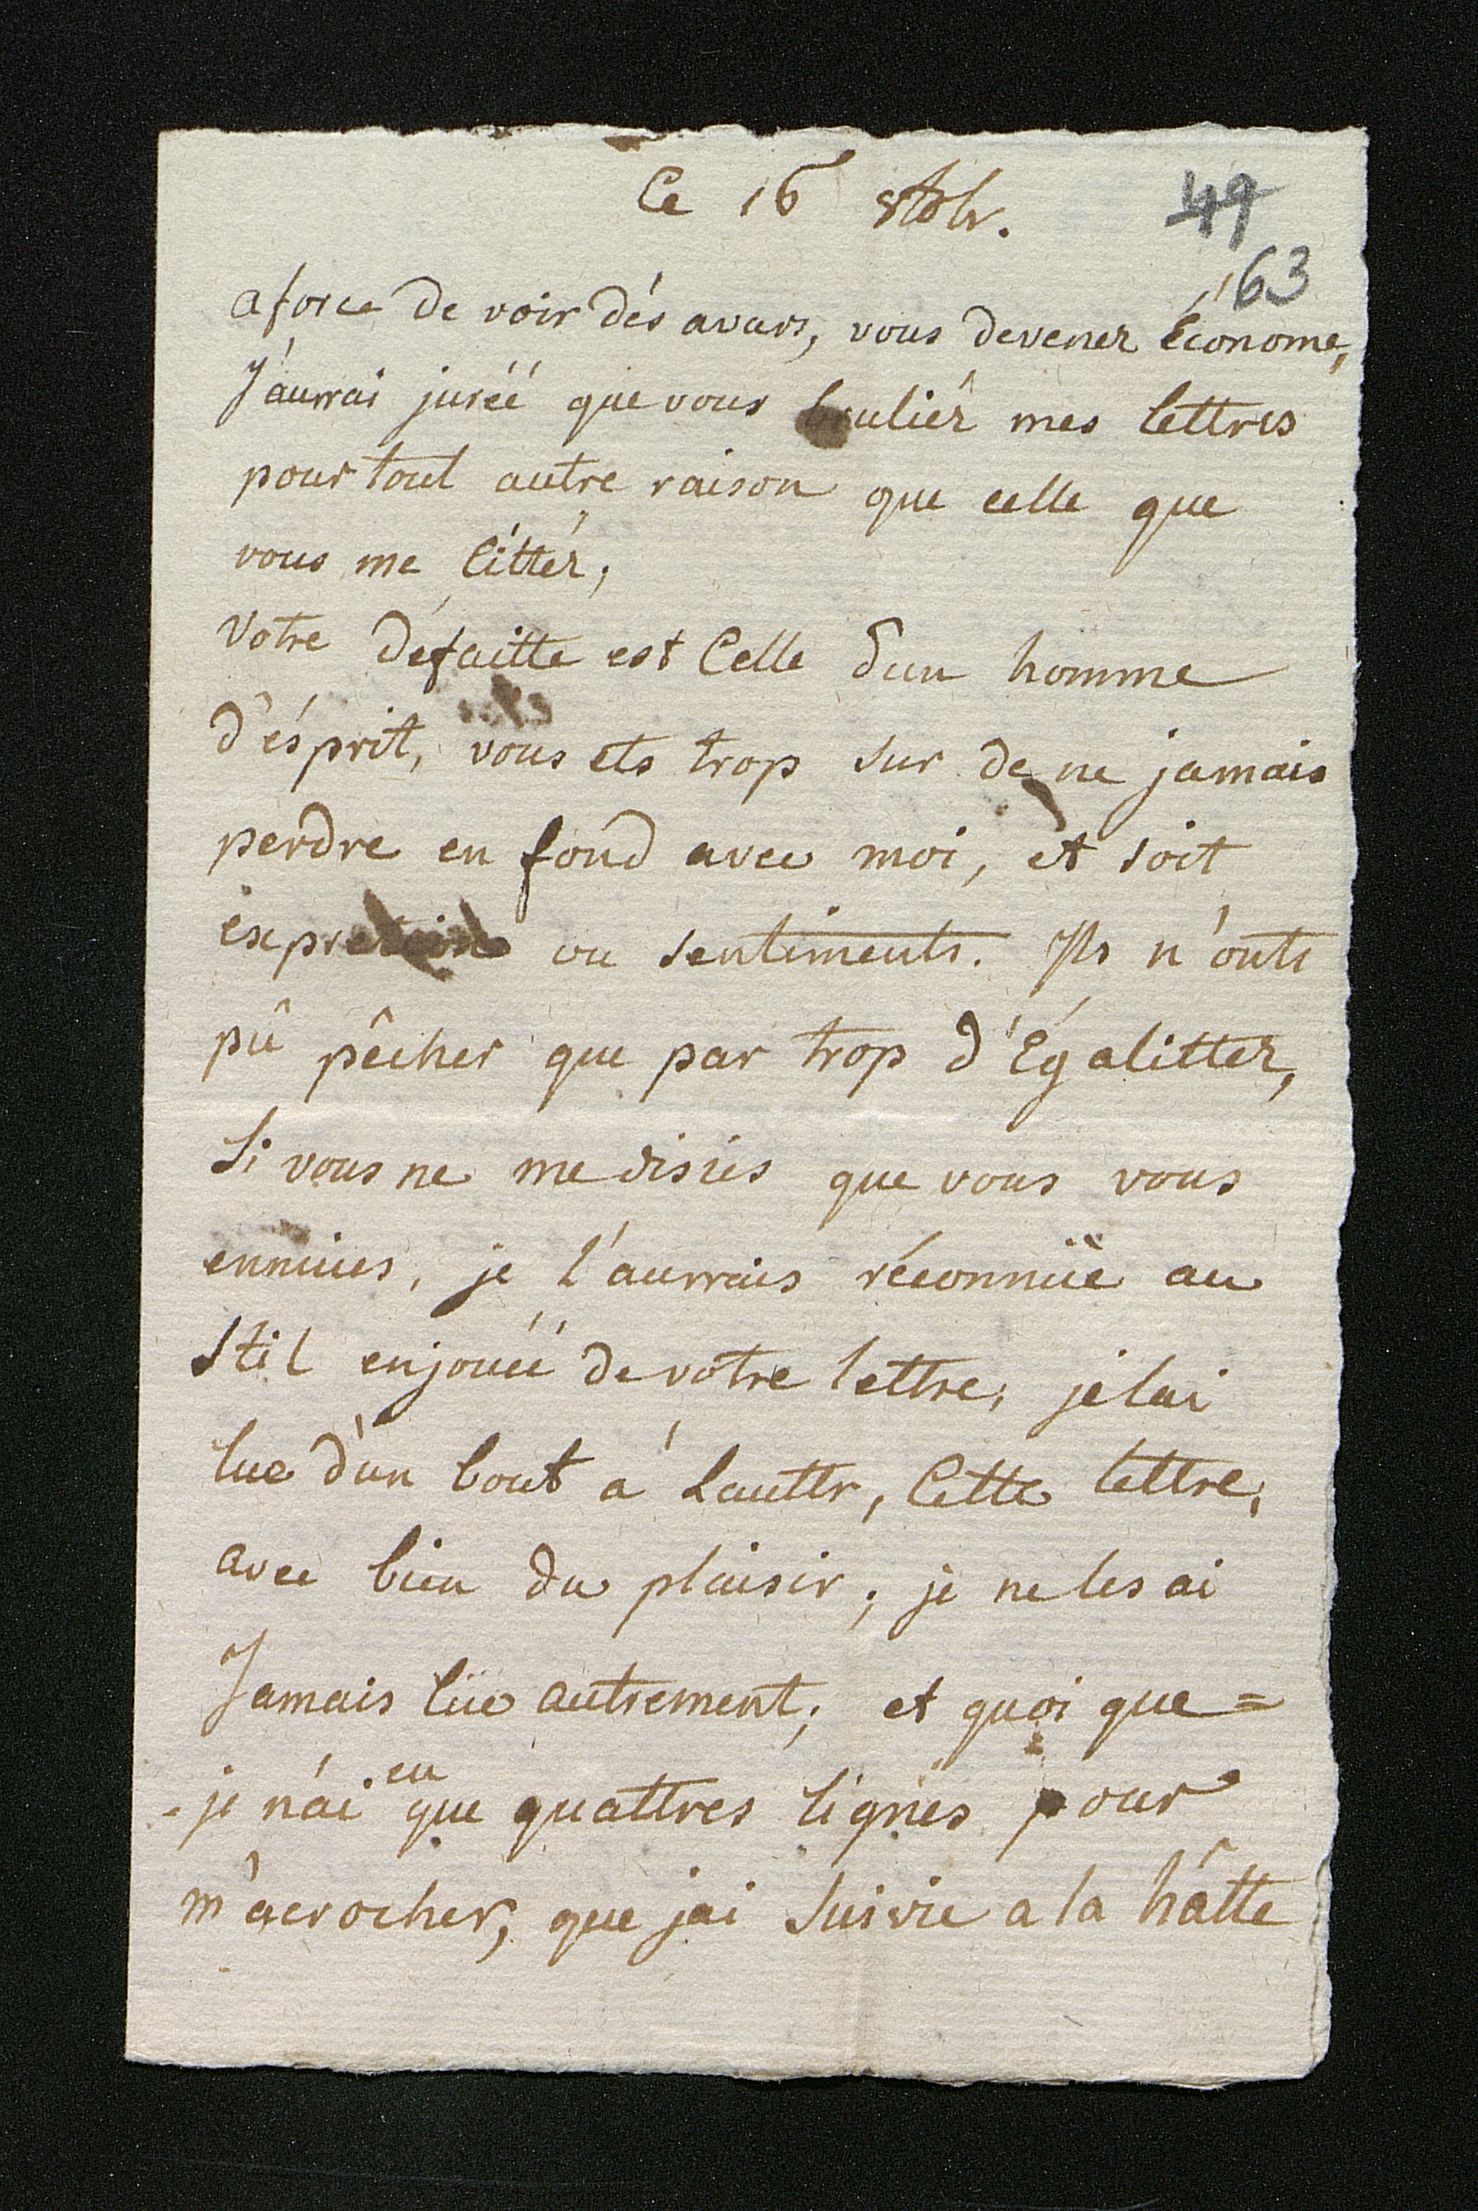 Ce 16 8tbr.
49
63
a force de voir dés avars, vous devener Économe,
J'aurrai juréé que vous bruliér mes lettres
pour tout autre raison que celle que
vous me cittér;
Votre défaitte est Celle d'un homme
d'ésprit, vous ets trop sur de ne jamais
perdre en fond avec moi, et soit
ou sentiments. Ils n'onts
pû pêcher que par trop d'Égalitter,
Si vous ne me disiés que vous vous
ennuies, je l'aurrais réconnüe au
Stil enjouéé de votre lettre; je lai
lue d'un bout a' Lauttr, Cette lettre,
avec bien du plaisir; je ne les ai
Jamais lüe autrement; et quoi que =
- je n'ai eu que quattres lignes pour
m'acrocher, que jai Suivie a la hâtte